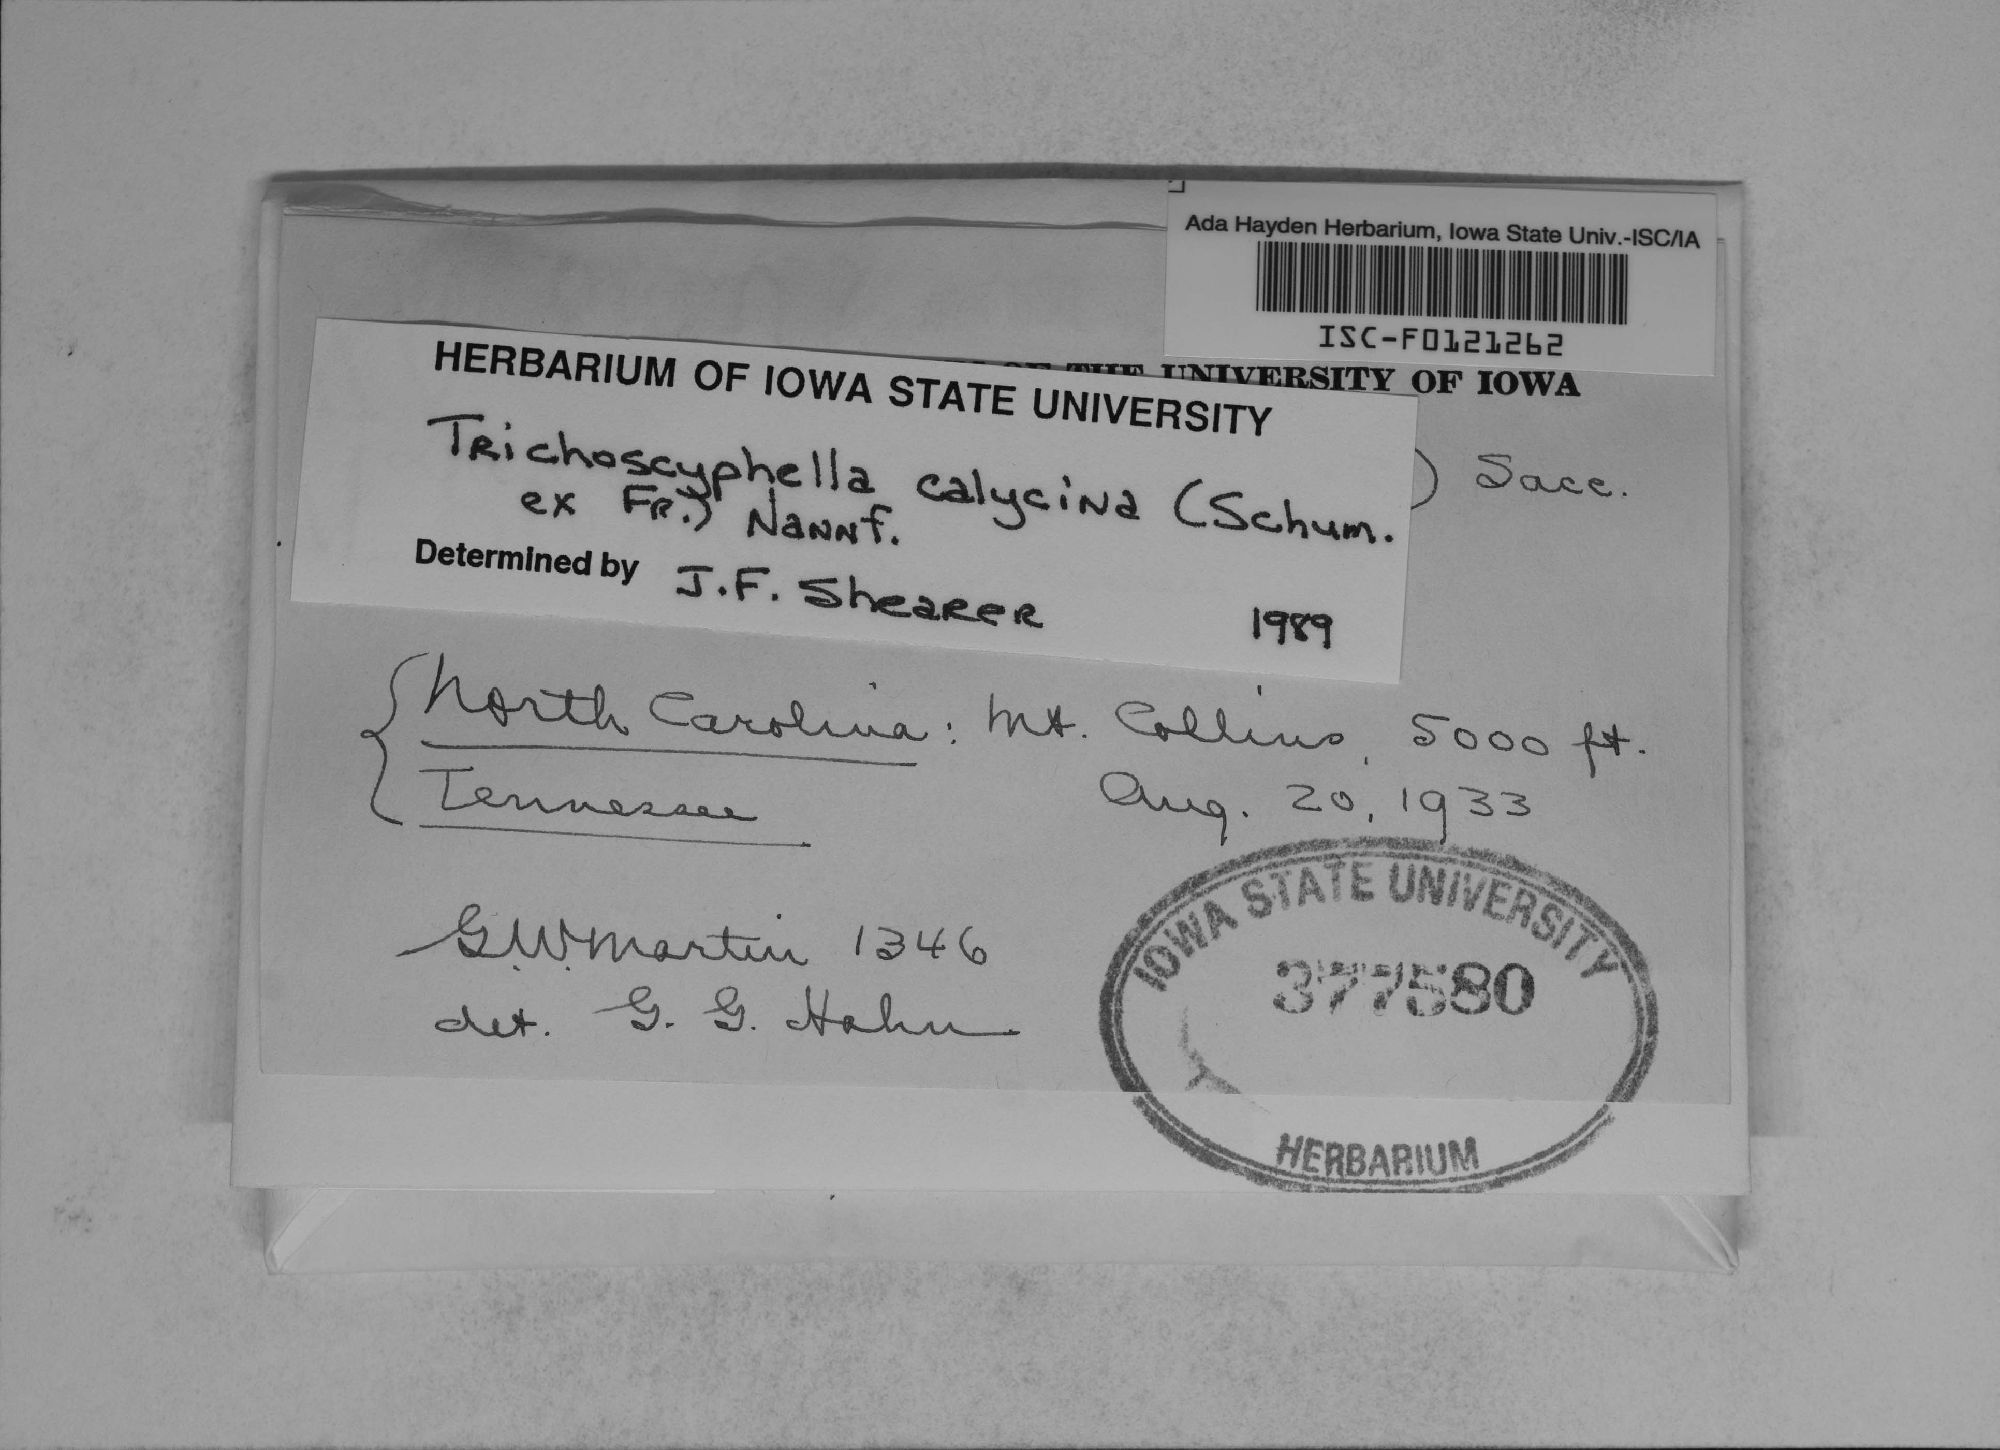 Ada Hayden Herbarium, Iowa State Univ.-ISC/IA
ISC-F0121262
OF THE UNIVERSITY OF IOWA
) Sacc.
HERBARIUM OF IOWA STATE UNIVERSITY
Trichoscyphella calycina (Schum.
ex Fr.) Nannf.
Determined by J.F. Shearer 1989
North Carolina: Mt. Collins, 5000 ft.
Tennessee Aug. 20, 1933
G.W. Martin 1346
det. G. G. Hahn
IOWA STATE UNIVERSITY
377580
HERBARIUM